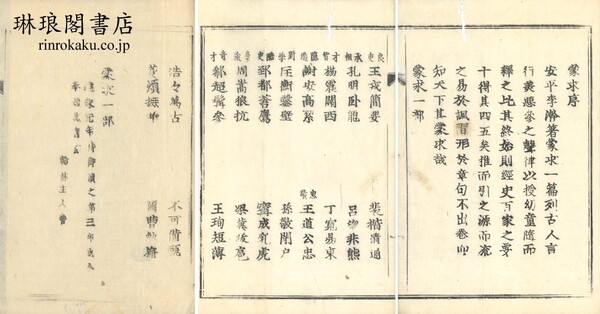 琳琅閣書店
rinrokaku.co.jp
蒙求序
安平李瀚著蒙求一篇列古人言
行美惡參之聲律以授幼童隨而
釋之比其終始則經史百家之要
十得其四五矣推而引之源而流
之易於諷習形於章句不出卷而
知天下其蒙求哉
蒙求一部
王戎簡要 裴楷清通
孔明臥龍 呂望非熊
楊震關西 丁寬易東
謝安高潔 王導公忠
匡衡鑿壁 孫敬閉戶
郅都蒼鷹 甯成乳虎
周嵩狼抗 梁冀跋扈
郗超髯參 王珣短簿
浩々萬古 不可備甄
芟煩摭華 爾曹勉旃
蒙求一部